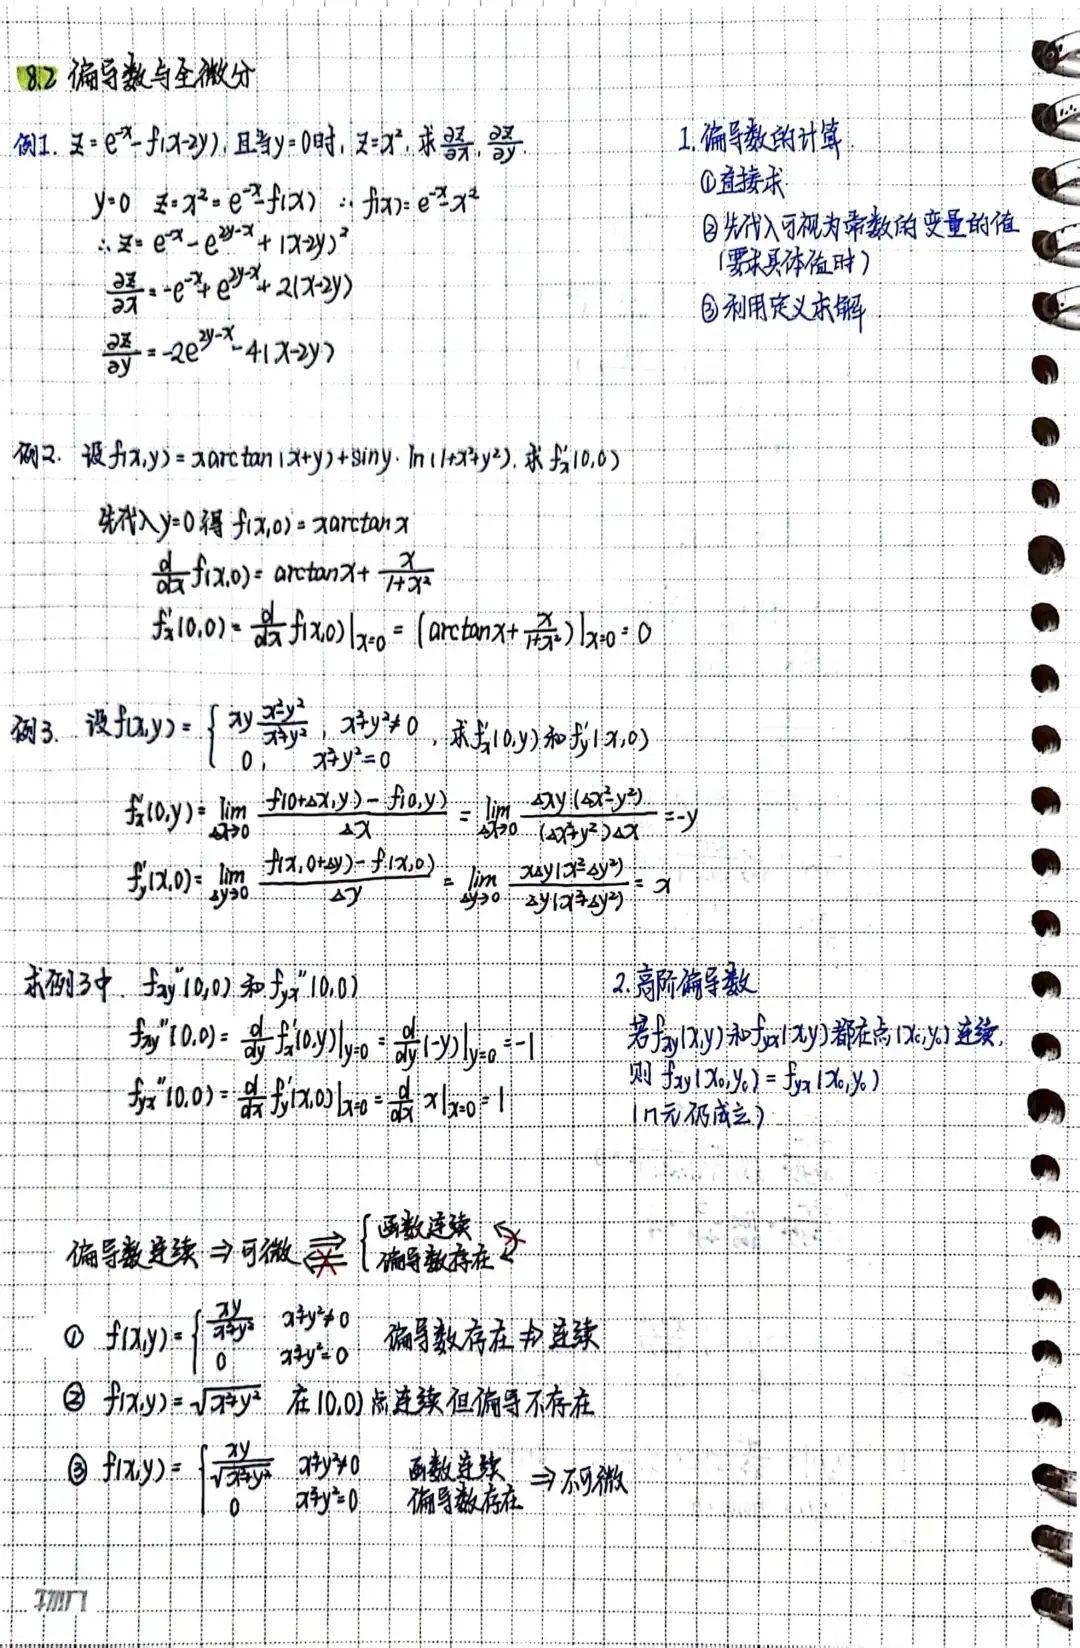 8.2 偏导数与全微分
例1. z=e^{-x}-f(x-2y), 且当y=0时, z=x², 求 ∂z/∂x, ∂z/∂y.
y=0 z=x²=e^{-x}-f(x) ∴ f(x)=e^{-x}-x²
∴ z=e^{-x}-e^{2y-x}+(x-2y)²
∂z/∂x=-e^{-x}+e^{2y-x}+2(x-2y)
∂z/∂y=-2e^{2y-x}-4(x-2y)
1. 偏导数的计算
①直接求
②先代入可视为常数的变量的值
(要求具体值时)
③利用定义求解
例2. 设f(x,y)=xarctan(x+y)+siny·ln(1+x²+y²), 求 f'x(0,0)
先代入y=0得 f(x,0)=xarctanx
d/dx f(x,0)=arctanx+x/(1+x²)
f'x(0,0)=d/dx f(x,0)|x=0=(arctanx+x/(1+x²))|x=0=0
例3. 设f(x,y)={ xy (x²-y²)/(x²+y²), x²+y²≠0, 求f'x(0,y)和f'y(x,0)
0, x²+y²=0
f'x(0,y)=lim Δx→0 [f(0+Δx,y)-f(0,y)]/Δx = lim Δx→0 [Δxy(Δx²-y²)]/[(Δx²+y²)Δx] =-y
f'y(x,0)=lim Δy→0 [f(x,0+Δy)-f(x,0)]/Δy = lim Δy→0 [xΔy(x²-Δy²)]/[Δy(x²+Δy²)] = x
求例3中 fxy''(0,0)和fyx''(0,0)
fxy''(0,0)=d/dy f'x(0,y)|y=0=d/dy(-y)|y=0=-1
fyx''(0,0)=d/dx f'y(x,0)|x=0=d/dx x|x=0=1
2. 高阶偏导数
若fxy(x,y)和fyx(x,y)都在点(x₀,y₀)连续,
则 fxy(x₀,y₀)=fyx(x₀,y₀)
(n元仍成立)
偏导数连续⇒可微 ⇒ { 函数连续
⇐ 偏导数存在
① f(x,y)={ xy/(x²+y²) x²+y²≠0 偏导数存在⇏连续
0 x²+y²=0
② f(x,y)=√(x²+y²) 在(0,0)点连续但偏导不存在
③ f(x,y)={ xy/√(x²+y²) x²+y²≠0 函数连续 ⇒不可微
0 x²+y²=0 偏导数存在